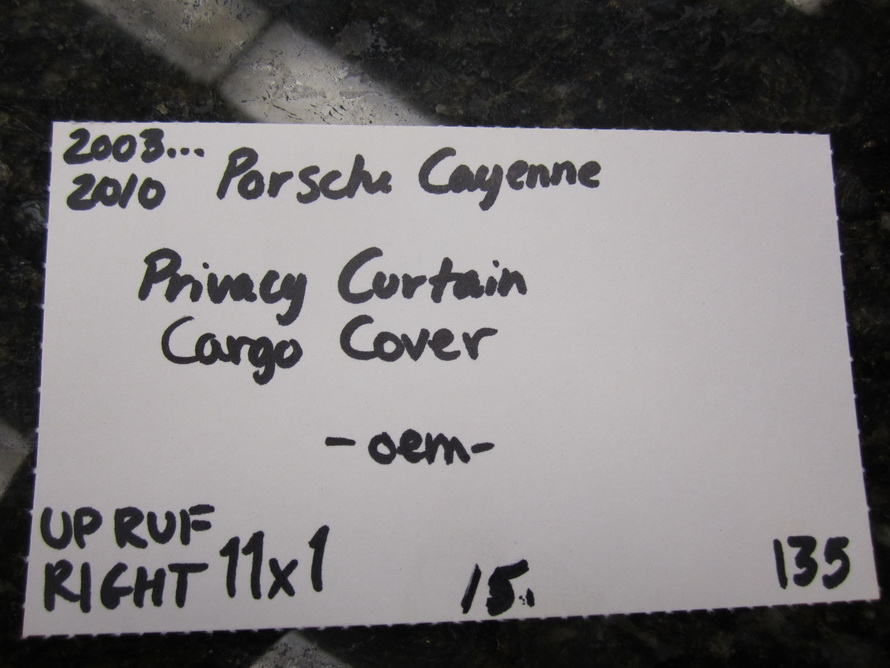 2003...
2010 Porsche Cayenne
Privacy Curtain
Cargo Cover
-oem-
UP RUF
RIGHT 11x1
15.
135